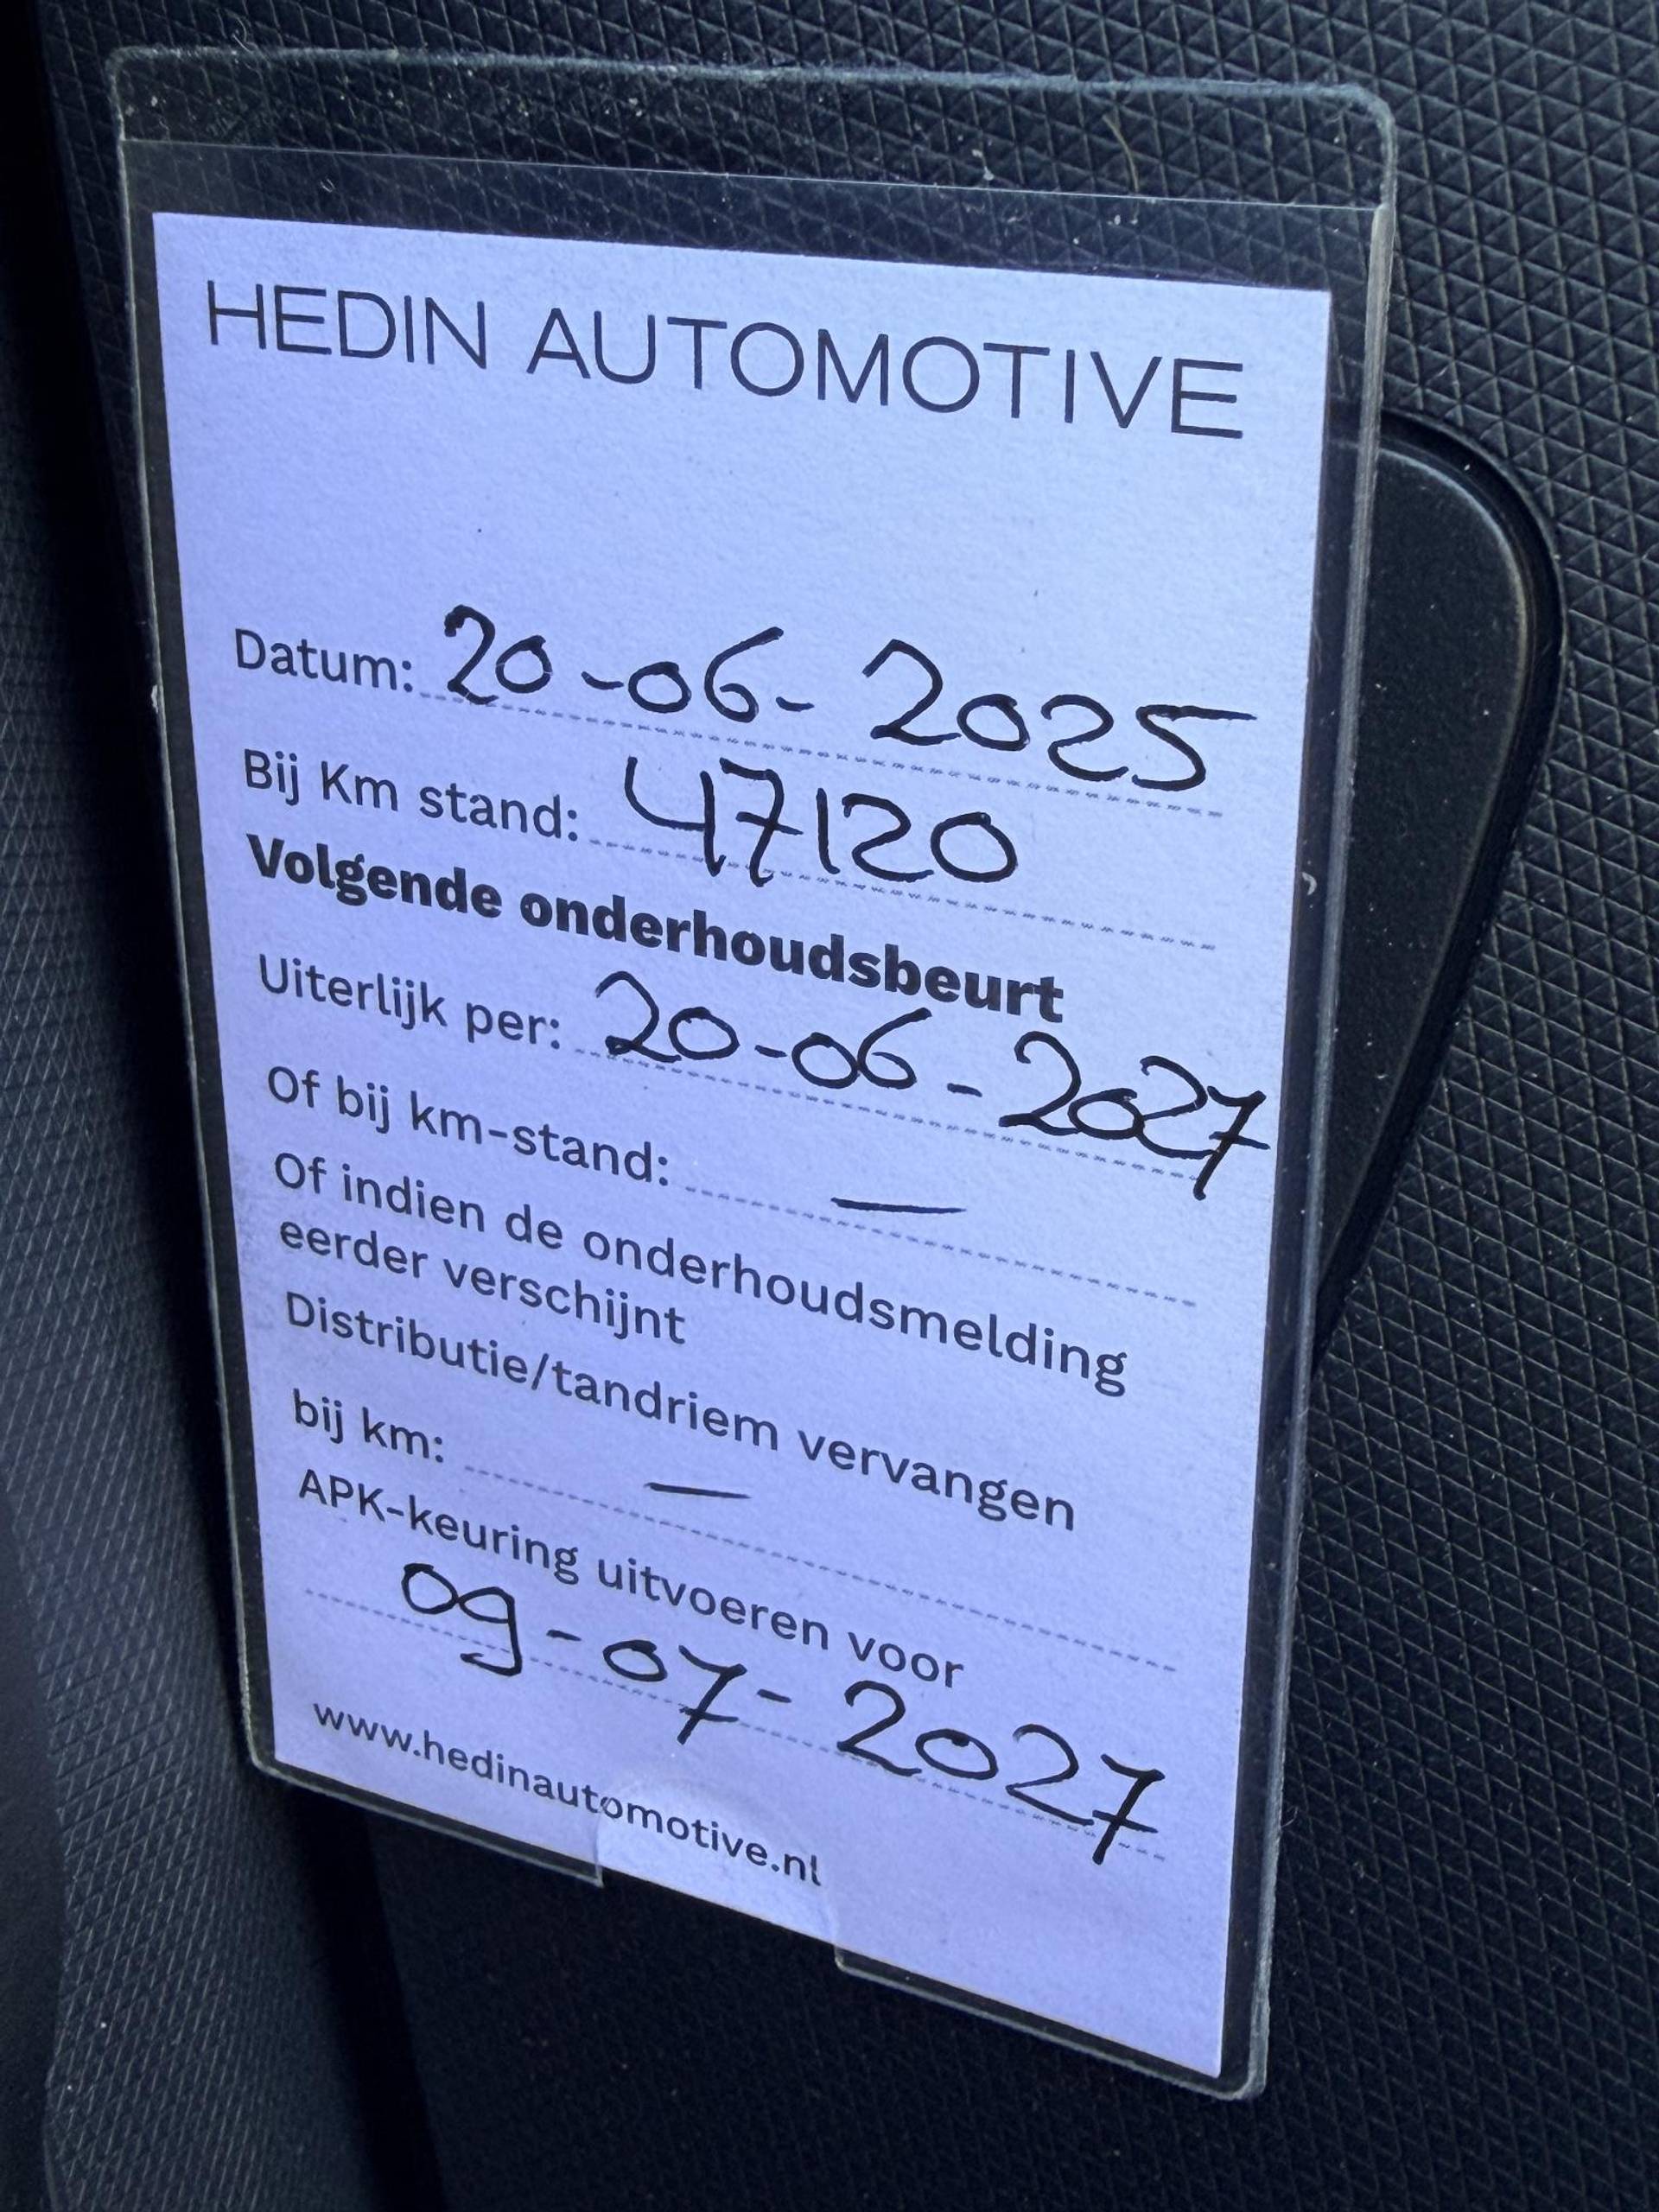 HEDIN AUTOMOTIVE
Datum: 20-06-2025
Bij Km stand: 47120
Volgende onderhoudsbeurt
Uiterlijk per: 20-06-2027
Of bij km-stand: —
Of indien de onderhoudsmelding
eerder verschijnt
Distributie/tandriem vervangen
bij km: —
APK-keuring uitvoeren voor
09-07-2027
www.hedinautomotive.nl